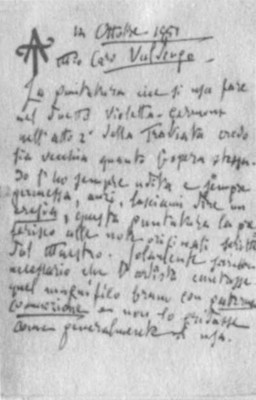 Ottobre 1951
Mio Caro Valdengo.
La puntatura che si usa fare
nel duetto Violetta-Germont
nell'atto 2º della Traviata credo
sia vecchia quanto l'opera stessa.
Io l'ho sempre udita e sempre
permessa, anzi, lasciami dire un
eresia, questa puntatura la pre
ferisco alle note originali scritte
dal Maestro. Solamente
necessario che l'artista cantasse
quel magnifico brano con paterna
commozione e non lo gridasse
come generalmente si usa.